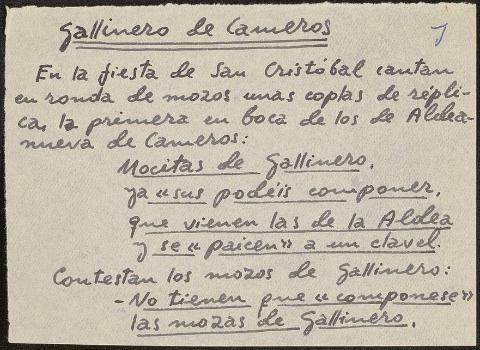 Gallinero de Cameros
En la fiesta de San Cristóbal cantan
en ronda de mozos unas coplas de répli-
ca, la primera en boca de los de Aldea-
nueva de Cameros:
Mocitas de Gallinero,
ya «sus podéis componer,
que vienen las de la Aldea
y se «paicen» a un clavel.
Contestan los mozos de Gallinero:
- No tienen que «componese»
las mozas de Gallinero,